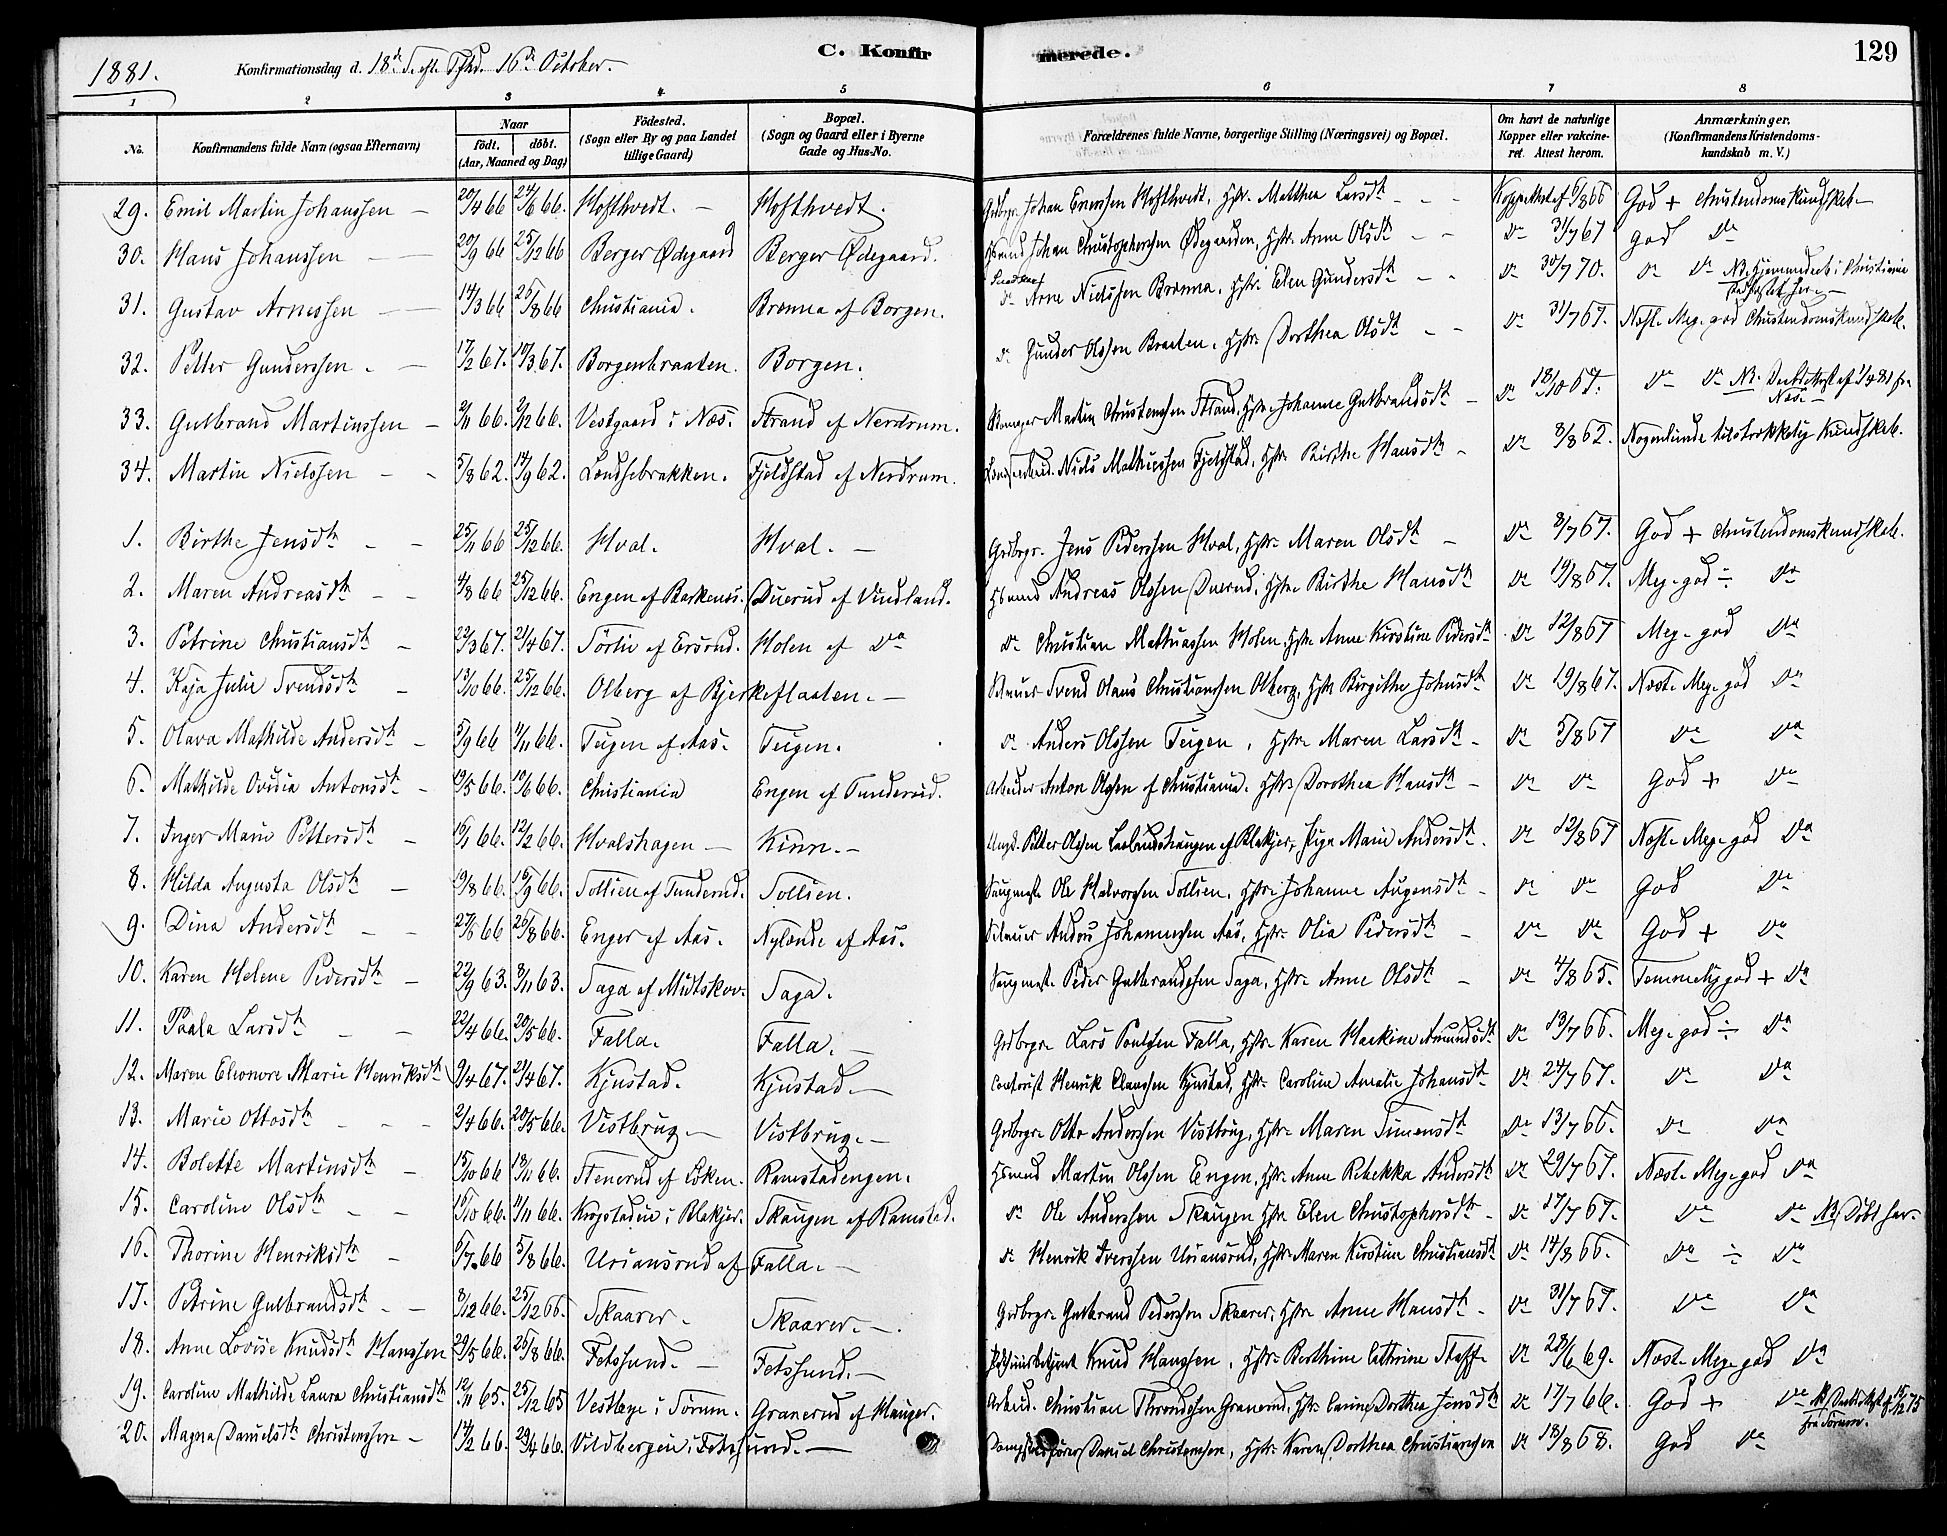 1881.
Konfirmationsdag d. 18de S. eft. Tfhd. 16de October.
C. Konfirmerede.
129
1 2 3 4 5 6 7 8
No.
Konfirmandens fulde Navn (ogsaa Efternavn)
Naar födt. döbt. (Aar, Maaned og Dag)
Födested. (Sogn eller By og paa Landet tillige Gaard)
Bopæl. (Sogn og Gaard eller i Byerne Gade og Hus-No.
Forældrenes fulde Navne, borgerlige Stilling (Næringsvei) og Bopæl.
Om havt de naturlige Kopper eller vakcineret. Attest herom.
Anmærkninger. (Konfirmandens Kristendomskundskab m. V.)
29. Emil Martin Johanssen 20/4 66 24/6 66. Hofthvedt. Hofthvedt. Gdbrgr. Johan Hofthvedt, Hstr. Matthea Larsdt Koppeattest af 6/8 66 God + Christendomskundskab.
30. Hans Johanssen 20/9 66 25/12 66 Berger Ødegaard Berger Ødegaard. Hsmand Johan Christophersen Ødegaarden, Hstr. Anne Olsdt Do 31/7 67 God Do
31. Gustav Arnessen 14/3 66 26/8 66 Christiania. Brænna af Borgen. Do Arne Nielssen Brænna, Hstr. Elen Gundersdt Do 30/7 70. Do Do NB. Hjemmedøbt i Christiania
32. Petter Gunderssen. 17/2 67. 10/3 67. Borgenbraaten. Borgen. Do Gunder Olssen Braaten, Hstr. Dorthea Olsdt Do 31/7 67. Næst. Meg. god Christendomskundskab.
33. Gulbrand Martinssen 2/11 66. 2/12 66. Vestgaard i Næs. Strand af Nerdrum. Martin Christenssen Strand, Hstr. Johanne Gulbrandsdt Do 18/10 67. Do Do NB. Næs.
34. Martin Nielssen 5/8 62. 14/9 62. Lendsebrakken. Fjeldstad af Nerdrum. Niels Mathiesen Fjeldstad, Hstr. Birthe Hansdt Do 8/8 62. Nogenlunde tilstrækkelig Kundskab.
1. Birthe Jensdt 25/11 66 25/12 66. Hval. Hval. Gdbrgr. Jens Pederssen Hval, Hstr. Maren Olsdt Do 8/7 67. God + Christendomskundskab.
2. Maren Andreasdt 4/8 66 25/12 66. Engen af Barkenæs. Duerud af Vindland. Hsmand Andreas Olssen Duerud, Hstr. Birthe Hansdt Do 19/8 67. Meg. god ÷ Do
3. Petrine Christiansdt 22/3 67. 21/4 67. Tørtie af Ersrud. Holen af Do Do Christian Mathiassen Holen, Hstr. Anne Kirstine Pedersdt Do 12/8 67 Meg. god Do
4. Kaja Julie Svendsdt 13/10 66. 25/12 66. Olberg af Bjerkeflaaten. Svend Olaus Christianssen Olberg, Hstr. Birgithe Johnsdt Do 19/8 67. Næst. Meg. god Do
5. Olava Mathilde Andersdt 5/9 66 4/11 66. Teigen af Aas. Teigen. Do Anders Olssen Teigen, Hstr. Maren Larsdt Do 5/8 67 Do Do
6. Mathilde Ovidia Antonsdt 19/5 66. 10/6 66. Christiania Engen af Tunderud. Arbeider Anton Olssen af Christiania, Hstr. Dorothea Hansdt Do Do God + Do
7. Inger Marie Pettersdt 16/1 66. 12/2 66. Hvalshagen Kinn. Ungk. Petter Olssen af Blakjer, Pige Marie Andersdt. Do 12/8 67 Næst. Meg. god Do
8. Hilda Augusta Olsdt 19/8 66. 16/9 66. Tollien af Tunderud. Tollien. Saugmest. Ole Halvorssen Tollien, Hstr. Johanne Augensdt Do Do God Do
9. Dina Andersdt 27/6 66 26/8 66. Enger af Aas. Nylænde af Aas. Anders Johannessen Aas, Hstr. Olia Pedersdt Do Do God + Do
10. Karen Helene Pedersdt 22/9 63. 8/11 63. Saga af Midtskov. Saga. Saugmest. Peder Gulbrandssen Saga, Hstr. Anne Olsdt Do 4/8 65. Temmelig god + Do
11. Paala Larsdt 22/4 66. 20/5 66. Falla. Falla. Gdbrgr. Lars Poulsen Falla, Hstr. Karen Amundsdt Do 13/7 66. Meg. god ÷ Do
12. Maren Eleonore Marie Henriksdt 9/4 67. 21/4 67. Kjustad. Kjustad. Contorist Henrik Claussen Kjustad, Hstr. Caroline Amalie Johansdt Do 24/7 67. Do Do
13. Marie Ottosdt 2/4 66. 20/5 66. Vestbrug. Vestbrug. Gdbrgr. Otto Anderssen Vestbrug, Hstr. Maren Simensdt Do 13/7 66. Do Do
14. Bolette Martinsdt 15/10 66 18/11 66. Stenerud af Løken. Ramstadengen. Hsmand Martin Olssen Engen, Hstr. Anne Rebekka Andersdt Do 29/7 67. Næst. Meg. god Do
15. Caroline Olsdt 16/10 66. 4/11 66. Krogstadie i Blakjer. Skaugen af Ramstad. Do Ole Anderssen Skaugen, Hstr. Elen Christophersdt Do 17/7 67. Do Do NB Døbt her.
16. Thorine Henriksdt 6/7 66 5/8 66. Uriansrud af Falla. Do Henrik Iverssen Uriansrud, Hstr. Maren Kirstine Christiansdt Do 14/8 66. Do ÷ Do
17. Petrine Gulbrandsdt 8/12 66. 25/12 66. Skaarer. Skaarer. Gdbrgr. Gulbrand Pederssen Skaarer, Hstr. Anne Hansdt Do 31/7 67. Do Do
18. Anne Lovise Knudsdt Hanssen 29/5 66. 26/8 66. Fetssund. Fetssund. Knud Hanssen, Hstr. Berthine Cathrine Staff Do 28/6 69. Næst. Meg. god Do
19. Caroline Mathilde Laura Christiansdt 12/11 65. 25/12 65 Vestbye i Sørum. Granerud af Hauger. Arbeid. Christian Throndssen Granerud, Hstr. Dorthea Jensdt Do 17/7 66. God + Do NB. 12/75 fra Sørum.
20. Magna Danielsdt Christenssen 14/2 66. 29/4 66. Vildbergen i Fetssund. Daniel Christenssen, Hstr. Karen Dorthea Christianssen Do 18/8 68. God Do